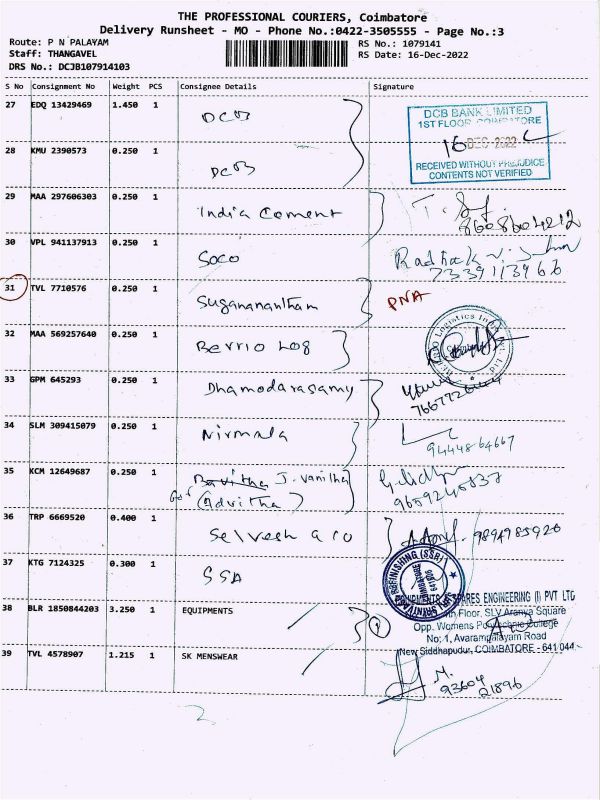 THE PROFESSIONAL COURIERS, Coimbatore
Delivery Runsheet - MO - Phone No.:0422-3505555 - Page No.:3
Route: P N PALAYAM
Staff: THANGAVEL
DRS No.: DCJB107914103
RS No.: 1079141
RS Date: 16-Dec-2022
S No Consignment No Weight PCS Consignee Details Signature
27 EDQ 13429469 1.450 1 DCB
DCB BANK LIMITED
1ST FLOOR, COIMBATORE
16 DEC 2022
RECEIVED WITHOUT PREJUDICE
CONTENTS NOT VERIFIED
28 KMU 2390573 0.250 1 DCB
29 MAA 297606303 0.250 1 India Cement
8608604212
30 VPL 941137913 0.250 1 Soco
7339113966
31 TVL 7710576 0.250 1 Sugananantham PNA
32 MAA 569257640 0.250 1 Berrio Log
33 GPM 645293 0.250 1 Dhamodarasamy
34 SLM 309415079 0.250 1 Nirmala
9444864667
35 KCM 12649687 0.250 1 J. Vanitha
(Advitha)
9659245837
36 TRP 6669520 0.400 1 Selvesh a co
9894985920
37 KTG 7124325 0.300 1 SSA
38 BLR 1850844203 3.250 1 EQUIPMENTS
EQUIPMENTS & SPARES ENGINEERING (I) PVT LTD
4th Floor, SLV Aranya Square
Opp. Womens Polytechnic College
No: 1, Avarampalayam Road
New Siddhapudur, COIMBATORE - 641 044
39 TVL 4578907 1.215 1 SK MENSWEAR
M.
93604
21896
2